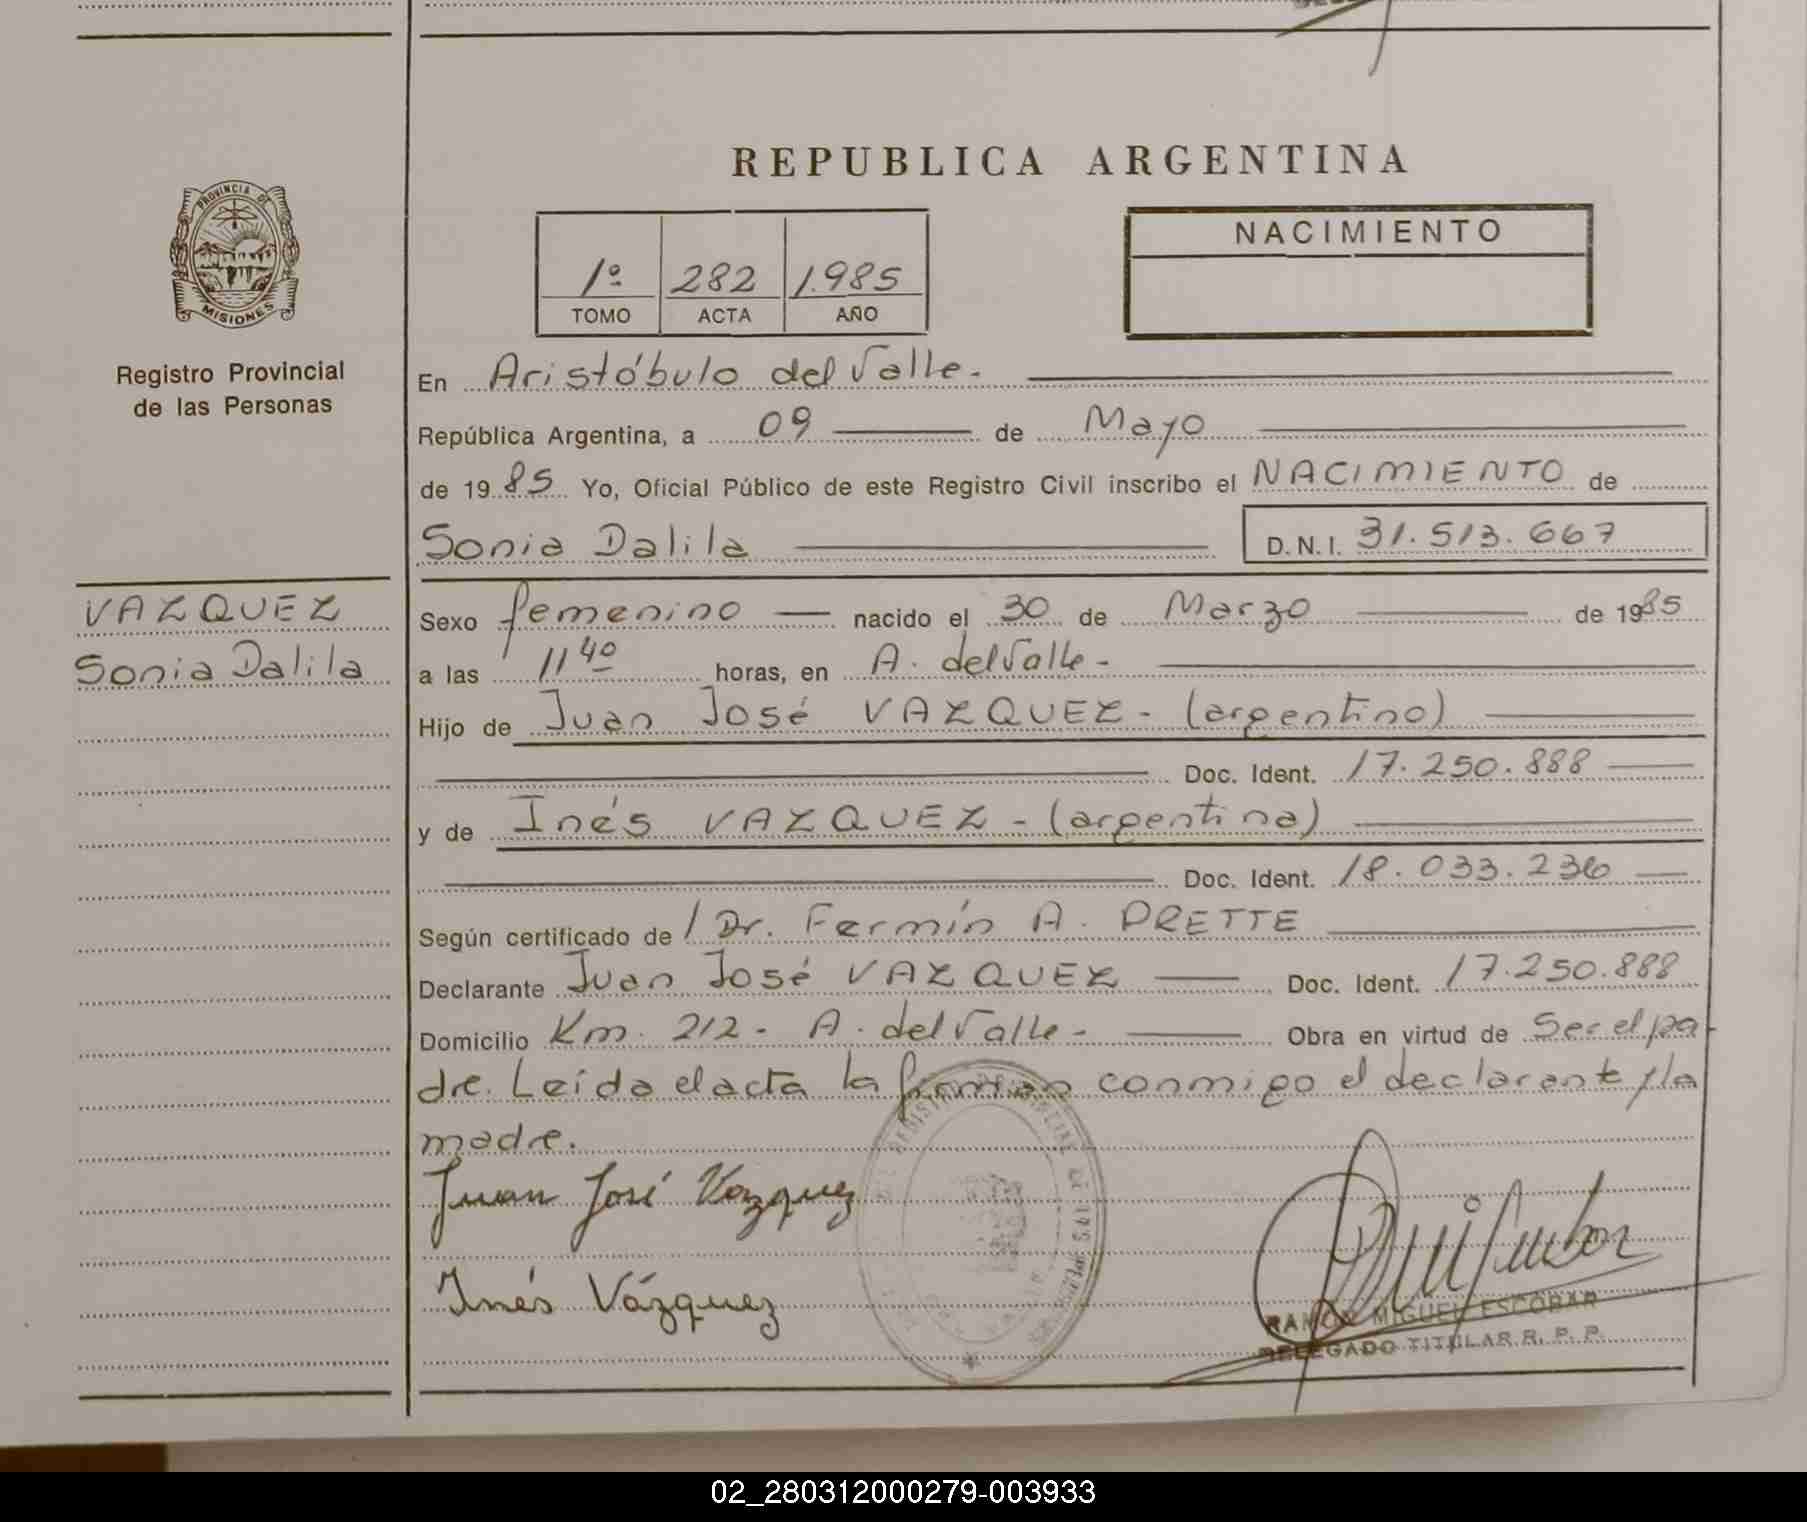 REPUBLICA ARGENTINA
PROVINCIA DE
MISIONES
Registro Provincial
de las Personas
1º 282 1.985
TOMO ACTA AÑO
NACIMIENTO
En Aristóbulo del Valle.
República Argentina, a 09 de Mayo
de 1985 Yo, Oficial Público de este Registro Civil inscribo el NACIMIENTO de
Sonia Dalila D.N.I. 31.513.667
VAZQUEZ
Sonia Dalila
Sexo femenino nacido el 30 de Marzo de 1985
a las 11 40 horas, en A. del Valle-
Hijo de Juan José VAZQUEZ - (argentino)
Doc. Ident. 17.250.888
y de Inés VAZQUEZ - (argentina)
Doc. Ident. 18.033.236
Según certificado de / Dr. Fermín A. PRETTE
Declarante Juan José VAZQUEZ Doc. Ident. 17.250.888
Domicilio Km. 212- A. del Valle- Obra en virtud de Ser el pa-
dre. Leída el acta la firman conmigo el declarante y la
madre.
Juan José Vazquez
Inés Vázquez
RAMON MIGUEL ESCOBAR
DELEGADO TITULAR R. P. P.
02_280312000279-003933